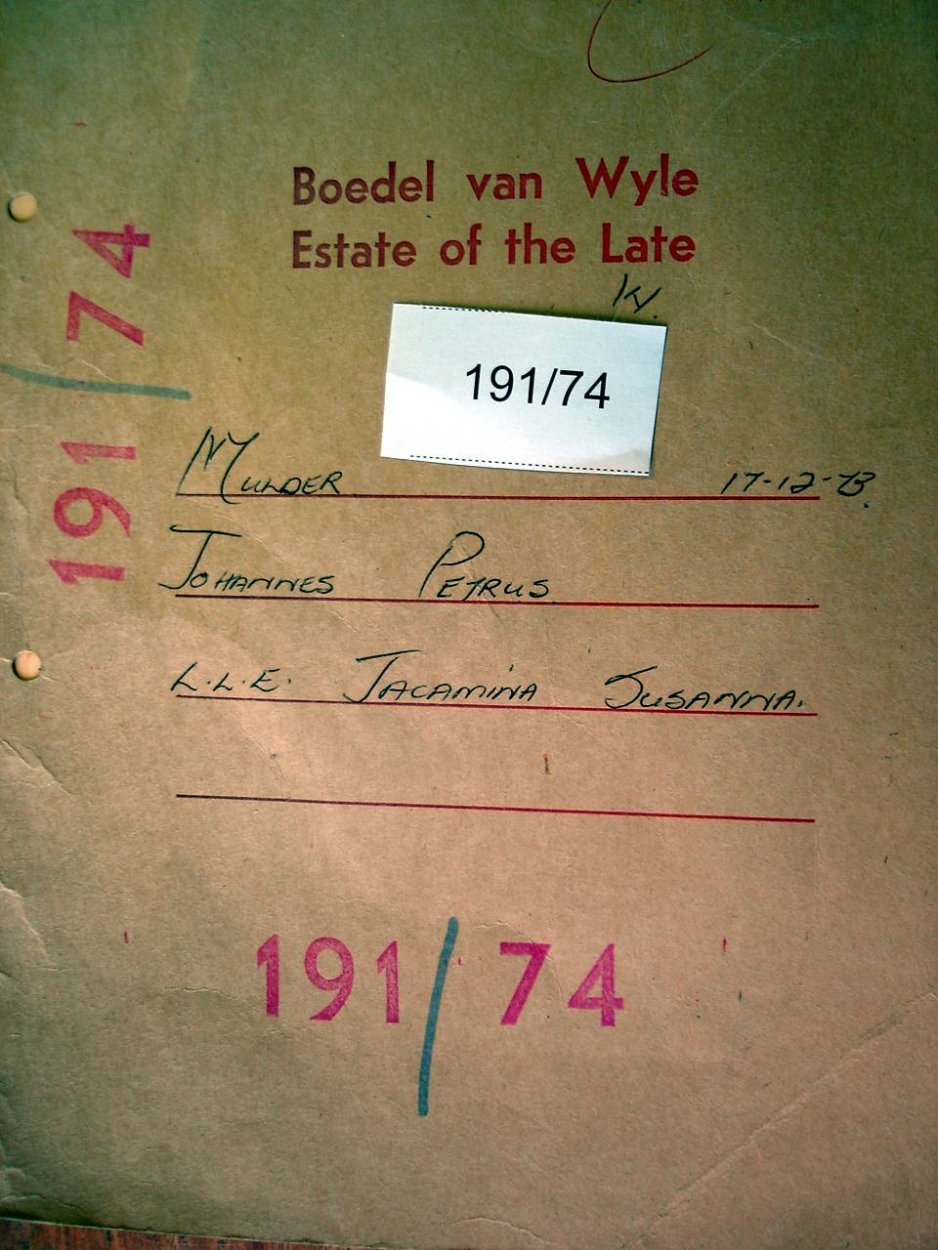 Boedel van Wyle
Estate of the Late
191/74
MULDER 17-12-73.
JOHANNES PETRUS
L.L.E. JACAMINA SUSANNA.
191/74
191/74